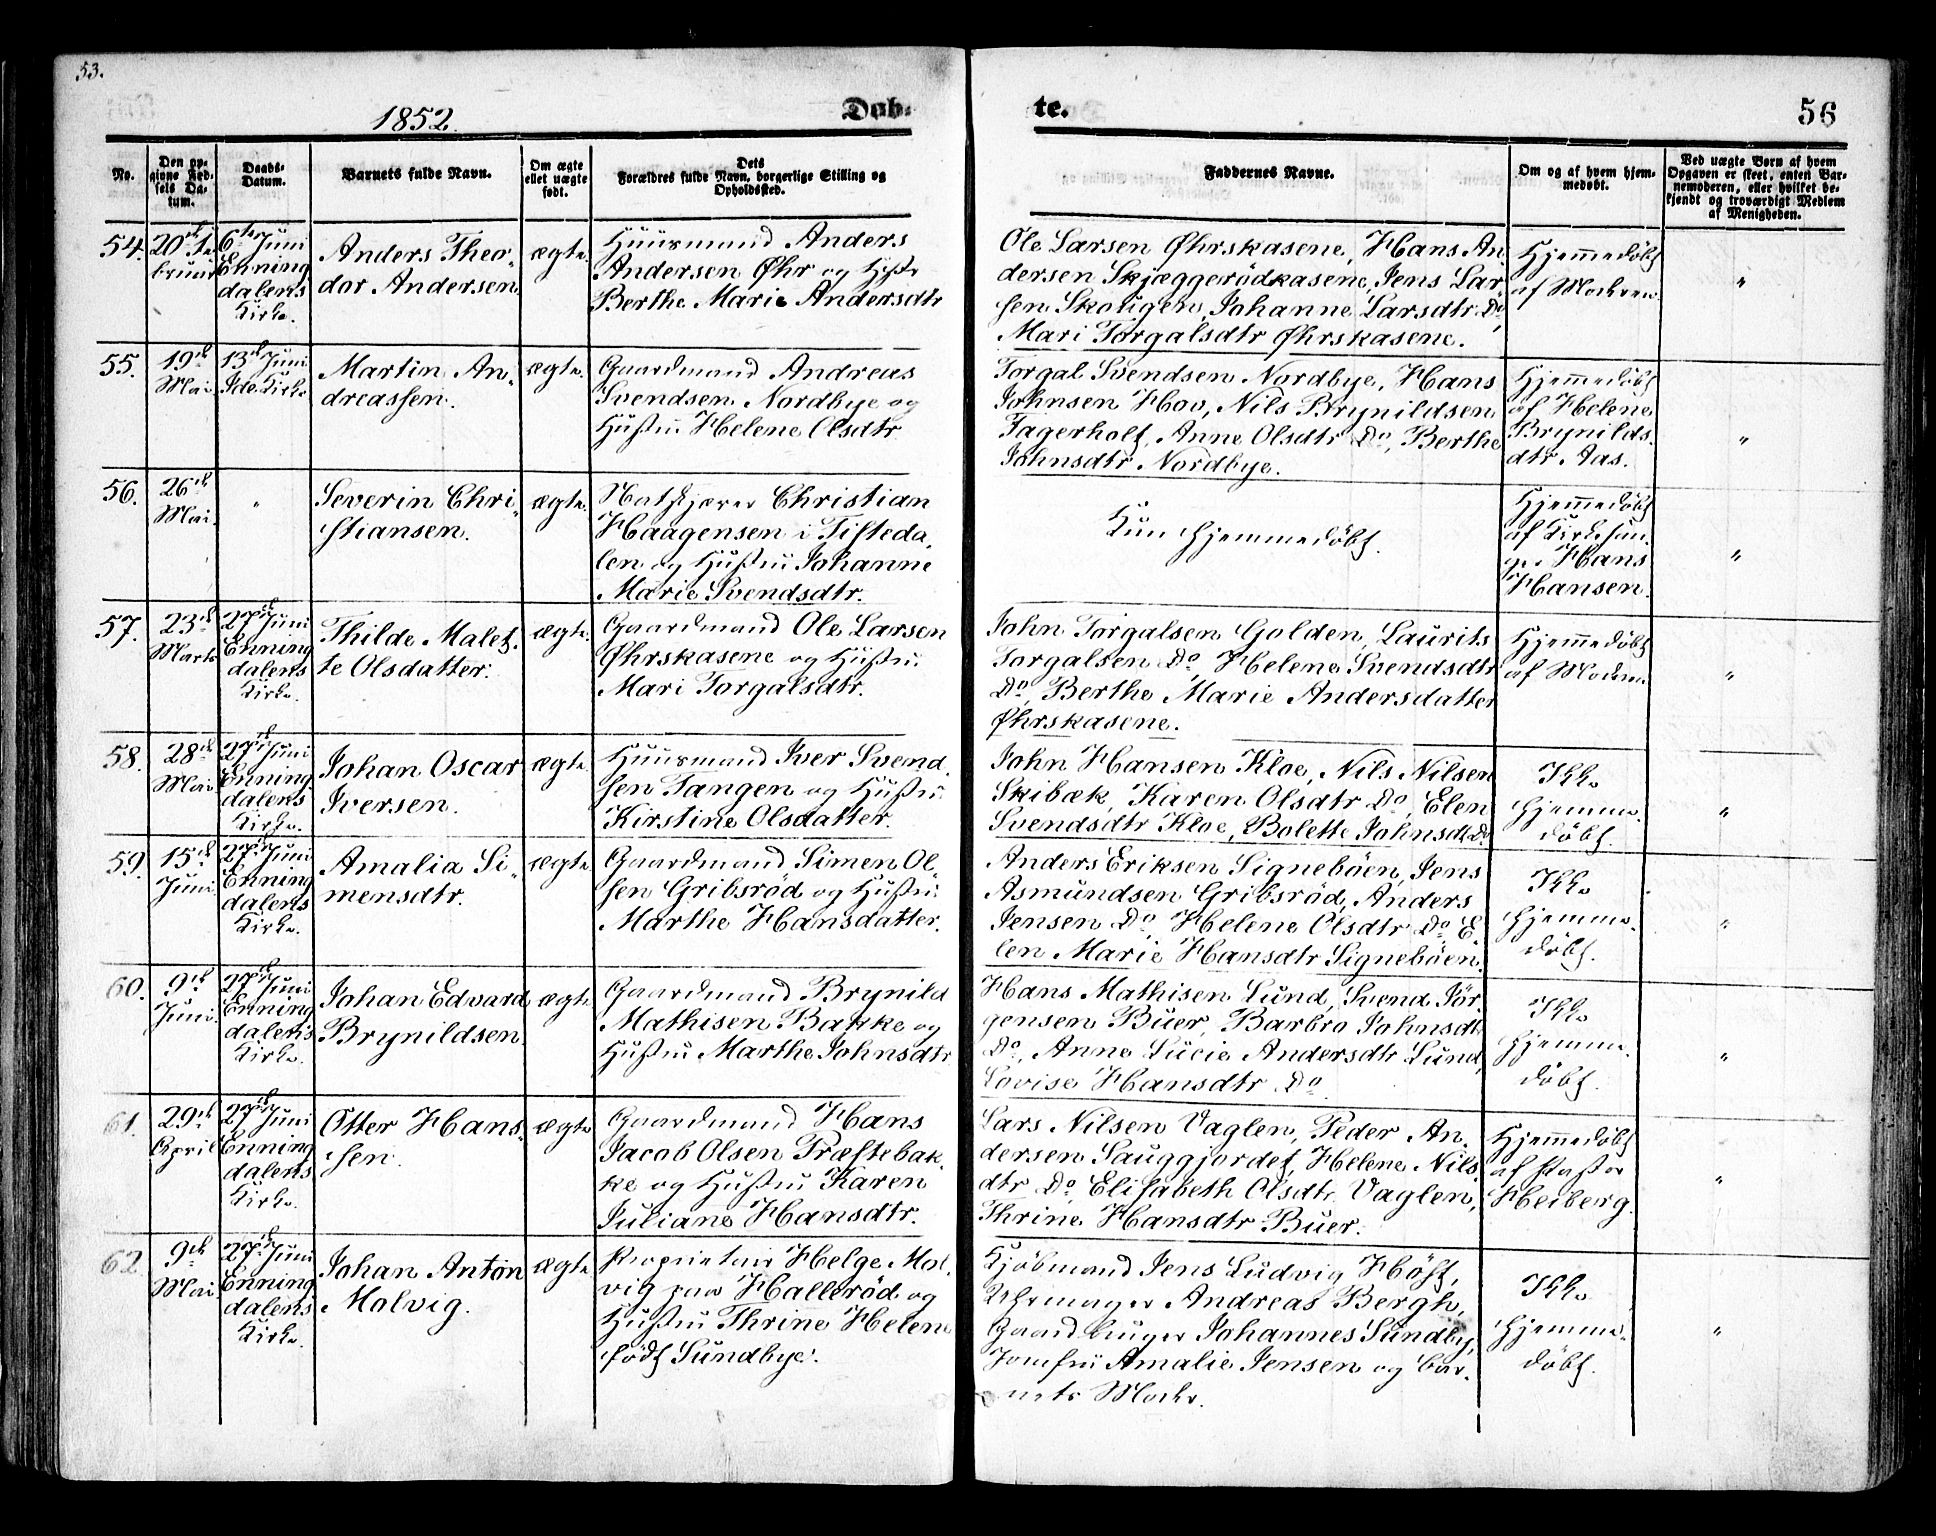 53.
1852.
Døb-
te.
56
No.
Den op-
givne Fød-
sels Da-
tum.
Daabs-
Datum.
Barnets fulde Navn.
Om ægte
ellet uægte
født.
Dets
Forældres fulde Navn, borgerlige Stilling og
Opholdssted.
Faddernes Navne.
Om og af hvem hjem-
medøbt.
Ved uægte Børn af hvem
Opgaven er skeet, enten Bar-
nemoderen, eller hvilket be-
kjendt og troværdigt Medlem
af Menigheden.
54.
20de Fe-
bruar
6te Juni
Enning
dalens
Kirke.
Anders Theo-
dor Andersen.
ægte.
Huusmand Anders
Andersen Øhr og Hustr
Berthe Marie Andersdtr
Ole Larsen Øhrskasene, Hans An-
dersen Skjæggerödkasene, Jens Lar-
sen Skougen, Johanne Larsdtr Do,
Mari Torgalsdtr Øhrskasene.
Hjemmedøbt
af Moderen.
"
55.
19de
Mai
13de Juni
Ide Kirke
Martin An-
dreassen.
ægte.
Gaardmand Andreas
Svendsen Nordbye og
Hustru Helene Olsdtr
Torgal Svendsen Nordbye, Hans
Johnsen Hov, Nils Brynildsen
Fagerholt, Anne Olsdtr Do, Berthe
Johnsdtr Nordbye.
Hjemmedøbt
af Helene
Brynilds-
dtr Aas.
"
56.
26de
Mai.
"
Severin Chri-
stiansen.
ægte.
Christian
Haagensen i Tisteda-
len og Hustru Johanne
Marie Svendsdtr.
Kun hjemmedöbt.
Hjemmedøbt
af Kirkesan-
ger Hans
Hansen.
"
57.
23de
Marts
27de Juni
Enning
dalens
Kirke.
Thilde Malet-
te Olsdatter.
ægte.
Gaardmand Ole Larsen
Øhrskasene og Hustru
Mari Torgalsdtr.
John Torgalsen Golden, Laurits
Torgalsen Do, Helene Svendsdtr
Do, Berthe Marie Andersdatter
Øhrskasene.
Hjemmedøbt
af Moderen
"
58.
28de
Mai
27de Juni
Enning
dalens
Kirke.
Johan Oscar
Iversen.
ægte.
Huusmand Iver Svend-
sen Tangen og Hustru
Kirstine Olsdatter.
John Hansen Kloe, Nils Nilsen
Skibæk, Karen Olsdtr Do, Elen
Svendsdtr Kloe, Bolette Johnsdtr Do
Ikke
hjemme-
döbt.
"
59.
15de
Juni
27de Juni
Enning
dalens
Kirke.
Amalia Si-
mensdtr.
ægte.
Gaardmand Simen Ol-
sen Gribsröd og Hustru
Marthe Hansdatter.
Anders Eriksen Signebøen, Jens
Asmundsen Gribsröd, Anders
Jensen Do, Helene Olsdtr Do, E-
len Marie Hansdtr Signebøen.
Ikke
hjemme-
döbt.
"
60.
9de
Juni
27de Juni
Enning
dalens
Kirke.
Johan Edvard
Brynildsen.
ægte
Gaardmand Brynild
Mathisen Bakke og
Hustru Marthe Johnsdtr
Hans Mathisen Lund, Svend Jör-
gensen Buer, Barbro Johnsdtr
Do, Anne Lucie Andersdtr Lund,
Lovise Hansdtr Do
Ikke
hjemme-
döbt.
"
61.
29de
April
27de Juni
Enning
dalens
Kirke.
Otter Hans-
sen.
ægte
Gaardmand Hans
Jacob Olsen Præstebak-
ke og Hustru Karen
Juliane Hansdtr.
Lars Nilsen Vaglen, Peder An-
dersen Sauggjordet, Helene Nils-
dtr Do, Elisabeth Olsdtr Vaglen,
Thrine Hansdtr Buer.
Hjemmedøbt
af Pastor
Heiberg.
"
62.
9de
Mai
27de Juni
Enning
dalens
Kirke.
Johan Anton
Molvig.
ægte
Proprietair Helge Mol-
vig paa Halleröd og
Hustru Thrine Helene
födt Sundbye.
Kjöbmand Jens Ludvig Höst,
Uhrmager Andreas Bergh,
Gaardbruger Johannes Sundby,
Jomfru Amalie Jensen og Bar-
nets Moder.
Ikke
hjemme-
döbt.
"